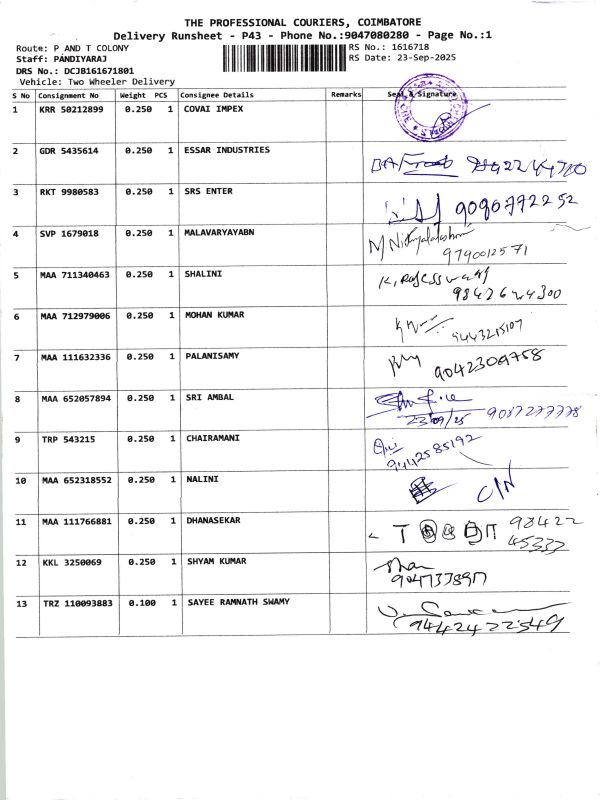 THE PROFESSIONAL COURIERS, COIMBATORE
Delivery Runsheet - P43 - Phone No.:9047080280 - Page No.:1
Route: P AND T COLONY
Staff: PANDIYARAJ
DRS No.: DCJB161671801
Vehicle: Two Wheeler Delivery
RS No.: 1616718
RS Date: 23-Sep-2025
S No Consignment No Weight PCS Consignee Details Remarks Seal & Signature
1 KRR 50212899 0.250 1 COVAI IMPEX
2 GDR 5435614 0.250 1 ESSAR INDUSTRIES
3 RKT 9980583 0.250 1 SRS ENTER
9090772252
4 SVP 1679018 0.250 1 MALAVARYAYABN
9790012571
5 MAA 711340463 0.250 1 SHALINI
6 MAA 712979006 0.250 1 MOHAN KUMAR
9443215107
7 MAA 111632336 0.250 1 PALANISAMY
8 MAA 652057894 0.250 1 SRI AMBAL
23/09/25
9 TRP 543215 0.250 1 CHAIRAMANI
9442585192
10 MAA 652318552 0.250 1 NALINI
C/N
11 MAA 111766881 0.250 1 DHANASEKAR
98422
45333
12 KKL 3250069 0.250 1 SHYAM KUMAR
13 TRZ 110093883 0.100 1 SAYEE RAMNATH SWAMY
9442422549